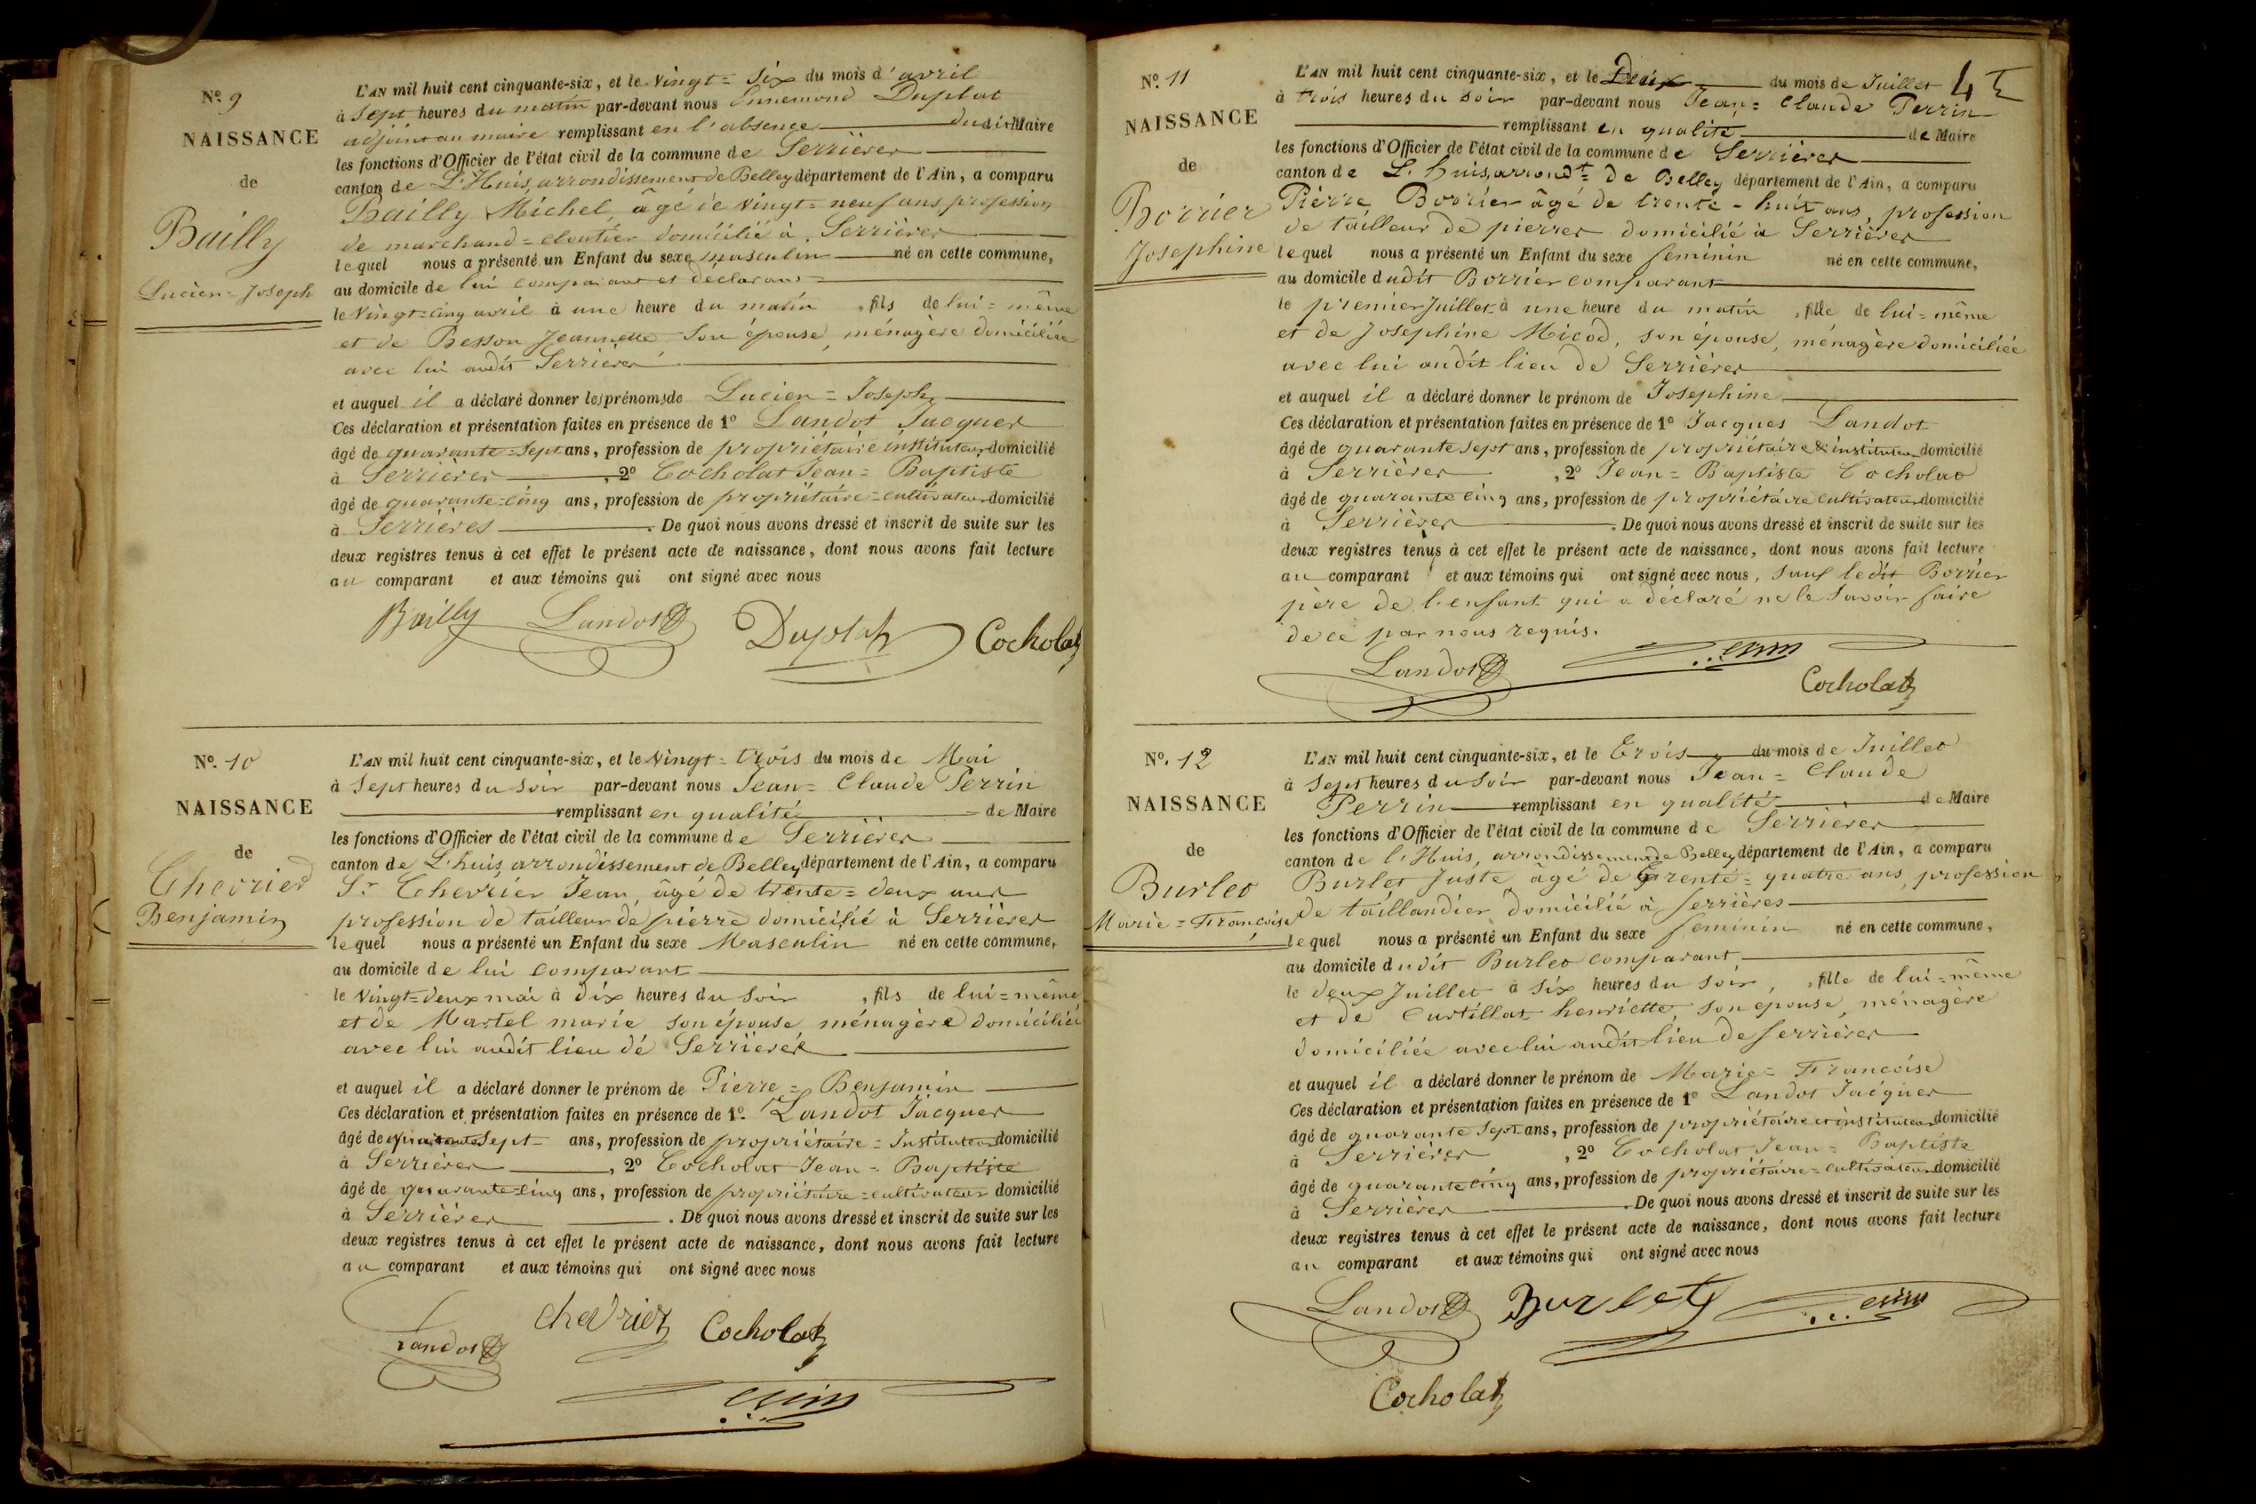 Nº. 9
NAISSANCE
de
Bailly
Lucien = Joseph
L'AN mil huit cent cinquante-six, et le vingt = six du mois d'avril
à sept heures du matin par-devant nous Ennemond Duplat
adjoint au maire remplissant en l'absence dudit Maire
les fonctions d'Officier de l'état civil de la commune de Serrières
canton de L'Huis, arrondissement de Belley département de l'Ain, a comparu
Bailly Michel, âgé de vingt = neuf ans, profession
de marchand = cloutier domicilié à Serrières
lequel nous a présenté un Enfant du sexe masculin né en cette commune,
au domicile de lui comparant et déclarant
le vingt = cinq avril à une heure du matin, fils de lui = même
et de Besson Jeannette son épouse, ménagère domiciliée
avec lui audit Serrières
et auquel il a déclaré donner les prénoms de Lucien = Joseph
Ces déclaration et présentation faites en présence de 1º Landot Jacques
âgé de quarante = sept ans, profession de propriétaire instituteur domicilié
à Serrières, 2º Cocholat Jean = Baptiste
âgé de quarante = cinq ans, profession de propriétaire = cultivateur domicilié
à Serrières. De quoi nous avons dressé et inscrit de suite sur les
deux registres tenus à cet effet le présent acte de naissance, dont nous avons fait lecture
au comparant et aux témoins qui ont signé avec nous
Bailly Landot Duplat Cocholat
Nº. 10
NAISSANCE
de
Chevrier
Benjamin
L'AN mil huit cent cinquante-six, et le vingt = trois du mois de Mai
à sept heures du soir par-devant nous Jean = Claude Perrin
remplissant en qualité de Maire
les fonctions d'Officier de l'état civil de la commune de Serrières
canton de L'huis, arrondissement de Belley département de l'Ain, a comparu
Sr Chevrier Jean, âgé de trente = deux ans
profession de tailleur de pierre domicilié à Serrières
lequel nous a présenté un Enfant du sexe Masculin né en cette commune,
au domicile de lui comparant
le vingt = deux mai à dix heures du soir, fils de lui = même
et de Martel marie, son épouse ménagère domiciliée
avec lui audit lieu de Serrières
et auquel il a déclaré donner le prénom de Pierre = Benjamin
Ces déclaration et présentation faites en présence de 1º Landot Jacques
âgé de quarante sept ans, profession de propriétaire = Instituteur domicilié
à Serrières, 2º Cocholat Jean = Baptiste
âgé de quarante = cinq ans, profession de propriétaire = cultivateur domicilié
à Serrières. De quoi nous avons dressé et inscrit de suite sur les
deux registres tenus à cet effet le présent acte de naissance, dont nous avons fait lecture
au comparant et aux témoins qui ont signé avec nous
Landot chevrier Cocholat
Perrin
Nº. 11
NAISSANCE
de
Borrier
Josephine
L'AN mil huit cent cinquante-six, et le Deux du mois de Juillet
à trois heures du soir par-devant nous Jean = Claude Perrin
remplissant en qualité de Maire
les fonctions d'Officier de l'état civil de la commune de Serrières
canton de L'huis, arrondt de Belley département de l'Ain, a comparu
Pierre Borrier âgé de trente - huit ans, profession
de tailleur de pierres domicilié à Serrières
lequel nous a présenté un Enfant du sexe féminin né en cette commune,
au domicile dudit Borrier comparant
le premier Juillet à une heure du matin, fille de lui = même
et de Josephine Micod, son épouse, ménagère domiciliée
avec lui audit lieu de Serrières
et auquel il a déclaré donner le prénom de Josephine
Ces déclaration et présentation faites en présence de 1º Jacques Landot
âgé de quarante sept ans, profession de propriétaire & instituteur domicilié
à Serrières, 2º Jean = Baptiste Cocholat
âgé de quarante cinq ans, profession de propriétaire cultivateur domicilié
à Serrières. De quoi nous avons dressé et inscrit de suite sur les
deux registres tenus à cet effet le présent acte de naissance, dont nous avons fait lecture
au comparant et aux témoins qui ont signé avec nous, sauf ledit Borrier
père de l'enfant qui a déclaré ne le savoir faire
de ce par nous requis.
Landot Perrin
Cocholat
Nº. 12
NAISSANCE
de
Burlet
Marie = Françoise
L'AN mil huit cent cinquante-six, et le Trois du mois de Juillet
à sept heures du soir par-devant nous Jean = Claude
Perrin remplissant en qualité de Maire
les fonctions d'Officier de l'état civil de la commune de Serrières
canton de l'Huis, arrondissement de Belley département de l'Ain, a comparu
Burlet Juste, âgé de trente = quatre ans, profession
de taillandier domicilié à Serrières
lequel nous a présenté un Enfant du sexe féminin né en cette commune,
au domicile dudit Burlet comparant
le deux Juillet à six heures du soir, fille de lui = même
et de Curtillat henriette, son épouse, ménagère
domiciliée avec lui audit lieu de Serrières
et auquel il a déclaré donner le prénom de Marie = Francoise
Ces déclaration et présentation faites en présence de 1º Landot Jacques
âgé de quarante sept ans, profession de propriétaire et instituteur domicilié
à Serrières, 2º Cocholat Jean = Baptiste
âgé de quarante cinq ans, profession de propriétaire = cultivateur domicilié
à Serrières. De quoi nous avons dressé et inscrit de suite sur les
deux registres tenus à cet effet le présent acte de naissance, dont nous avons fait lecture
au comparant et aux témoins qui ont signé avec nous
Landot Burlet Perrin
Cocholat